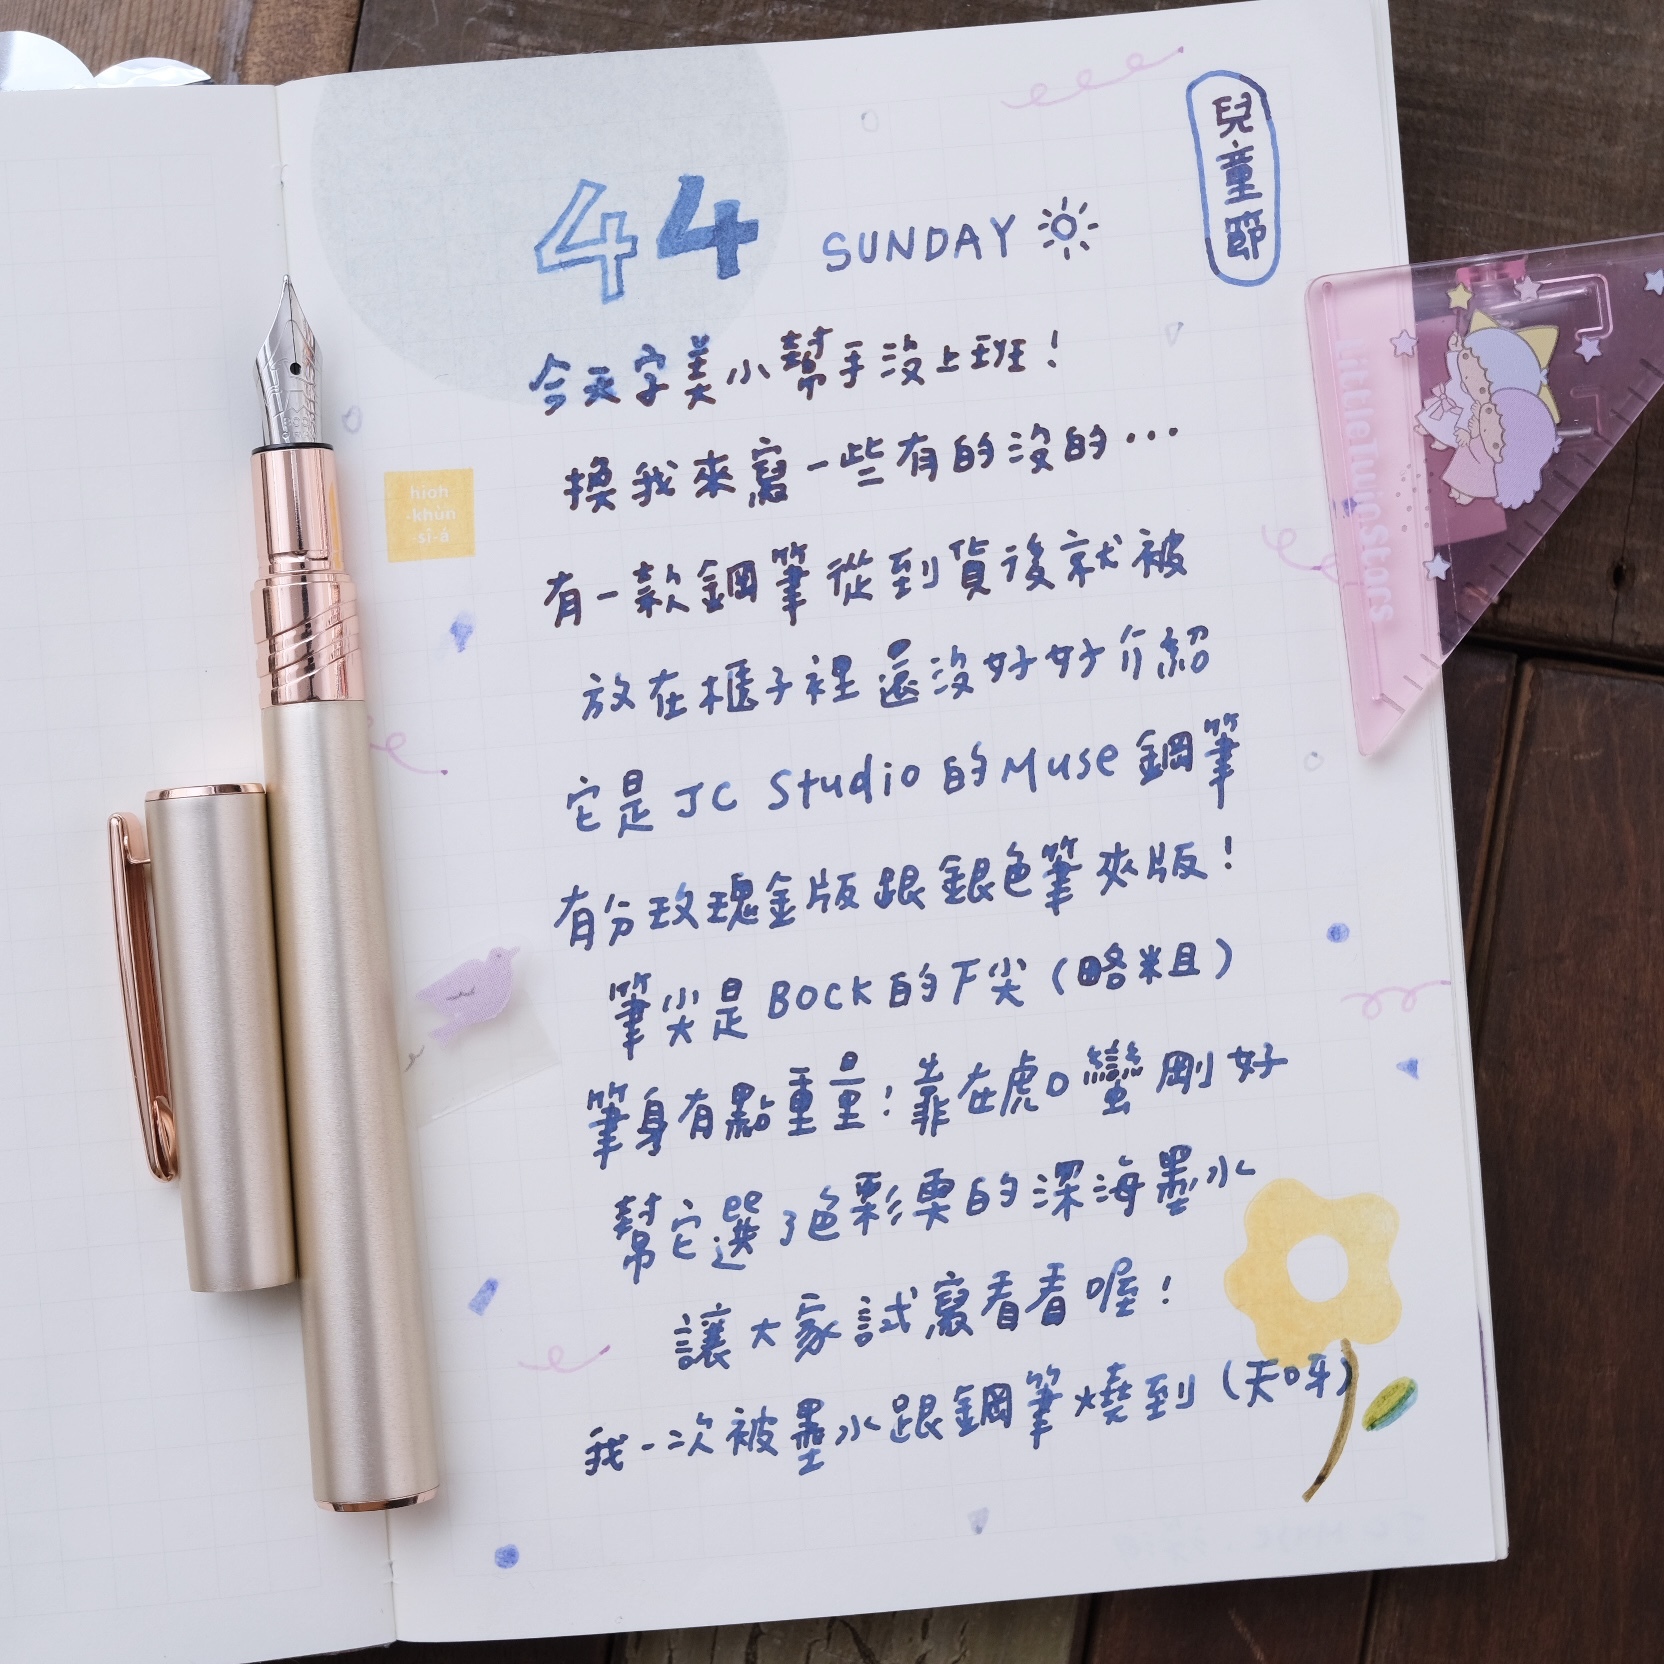 兒童節
44 SUNDAY
今天字美小幫手沒上班！
換我來寫一些有的沒的...
有一款鋼筆從到貨後就被
放在櫃子裡還沒好好介紹
它是 JC Studio 的 Muse 鋼筆
有分玫瑰金版跟銀色筆夾版！
筆尖是 BOCK 的 F尖（略粗）
筆身有點重量！靠在虎口蠻剛好
幫它選了色彩栗的深海墨水
讓大家試寫看看喔！
我一次被墨水跟鋼筆燒到（天呀）
hioh
-khùn
-sî-á
LittleTwinStars